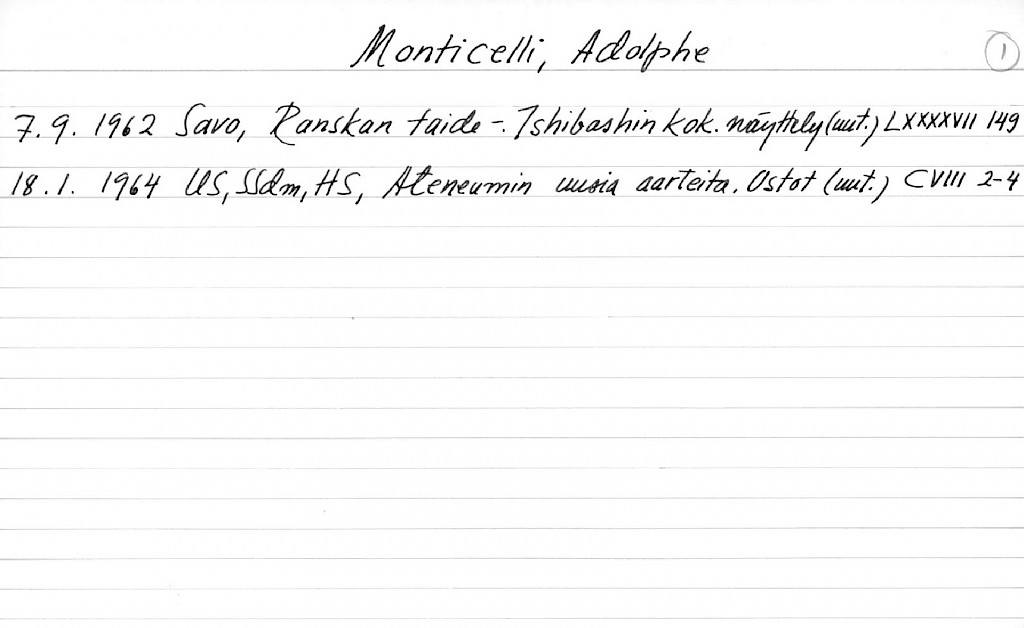 Monticelli, Adolphe 1
7.9. 1962 Savo, Ranskan taide -. Ishibashin kok. näyttely (uut.) LXXXXVII 149
18.1. 1964 US, SSdm, HS, Ateneumin uusia aarteita. Ostot (uut.) CVIII 2-4